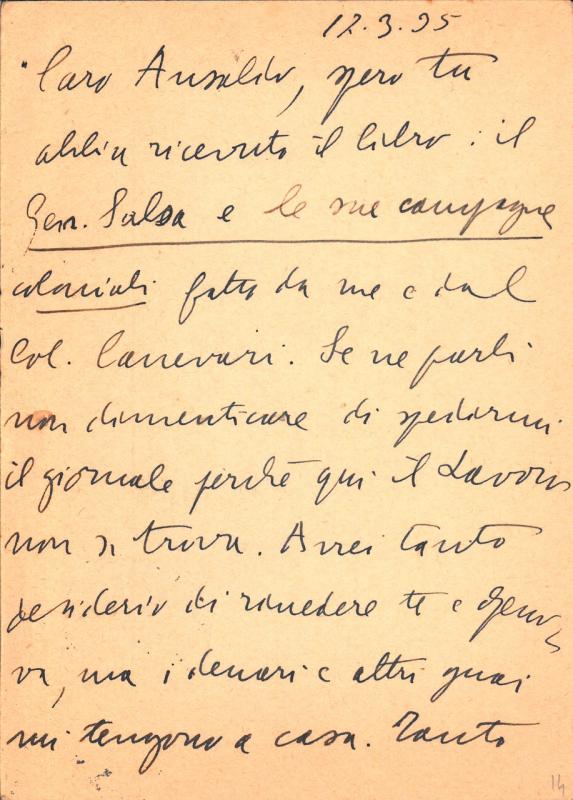 12.3.35
"Caro Ansaldo, spero tu
abbia ricevuto il libro: il
Gen. Salsa e le sue campagne
coloniali fatto da me e dal
Col. Canevari. Se ne parli
non dimenticare di spedirmi
il giornale perchè qui il Lavoro
non si trova. Avrei tanto
desiderio di rivedere te e Geno-
va, ma i denari e altri guai
mi tengono a casa. Tanto
14